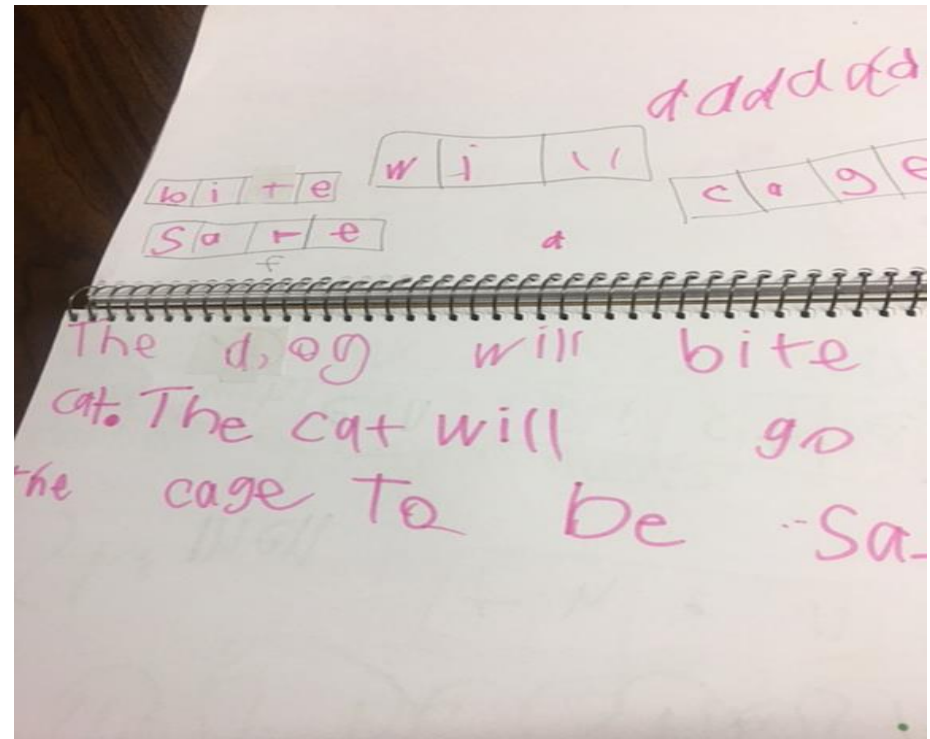 d d d d d d
w i ll
b i t e
c a g e
s a f e
f
d
The dog will bite
cat. The cat will go
the cage To be sa